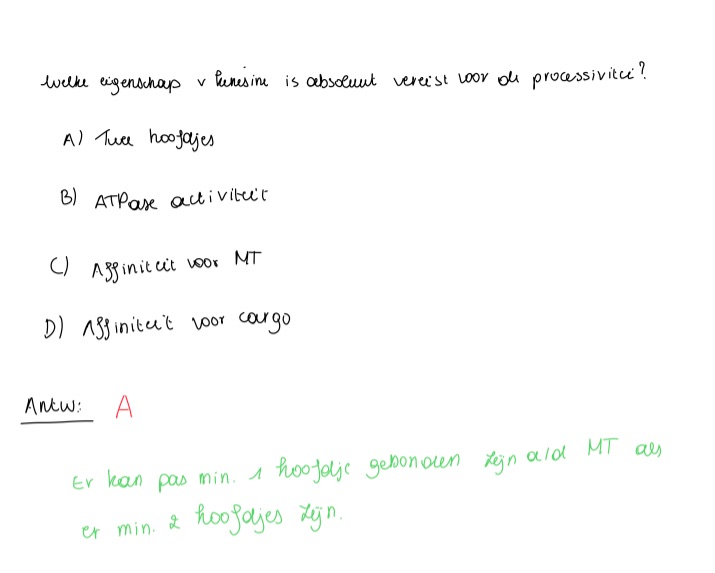 Welke eigenschap v kinesine is absoluut vereist voor de processiviteit?
A) Twee hoofdjes
B) ATPase activiteit
C) Affiniteit voor MT
D) Affiniteit voor cargo
Antw: A
Er kan pas min. 1 hoofdje gebonden zijn a/d MT als
er min. 2 hoofdjes zijn.